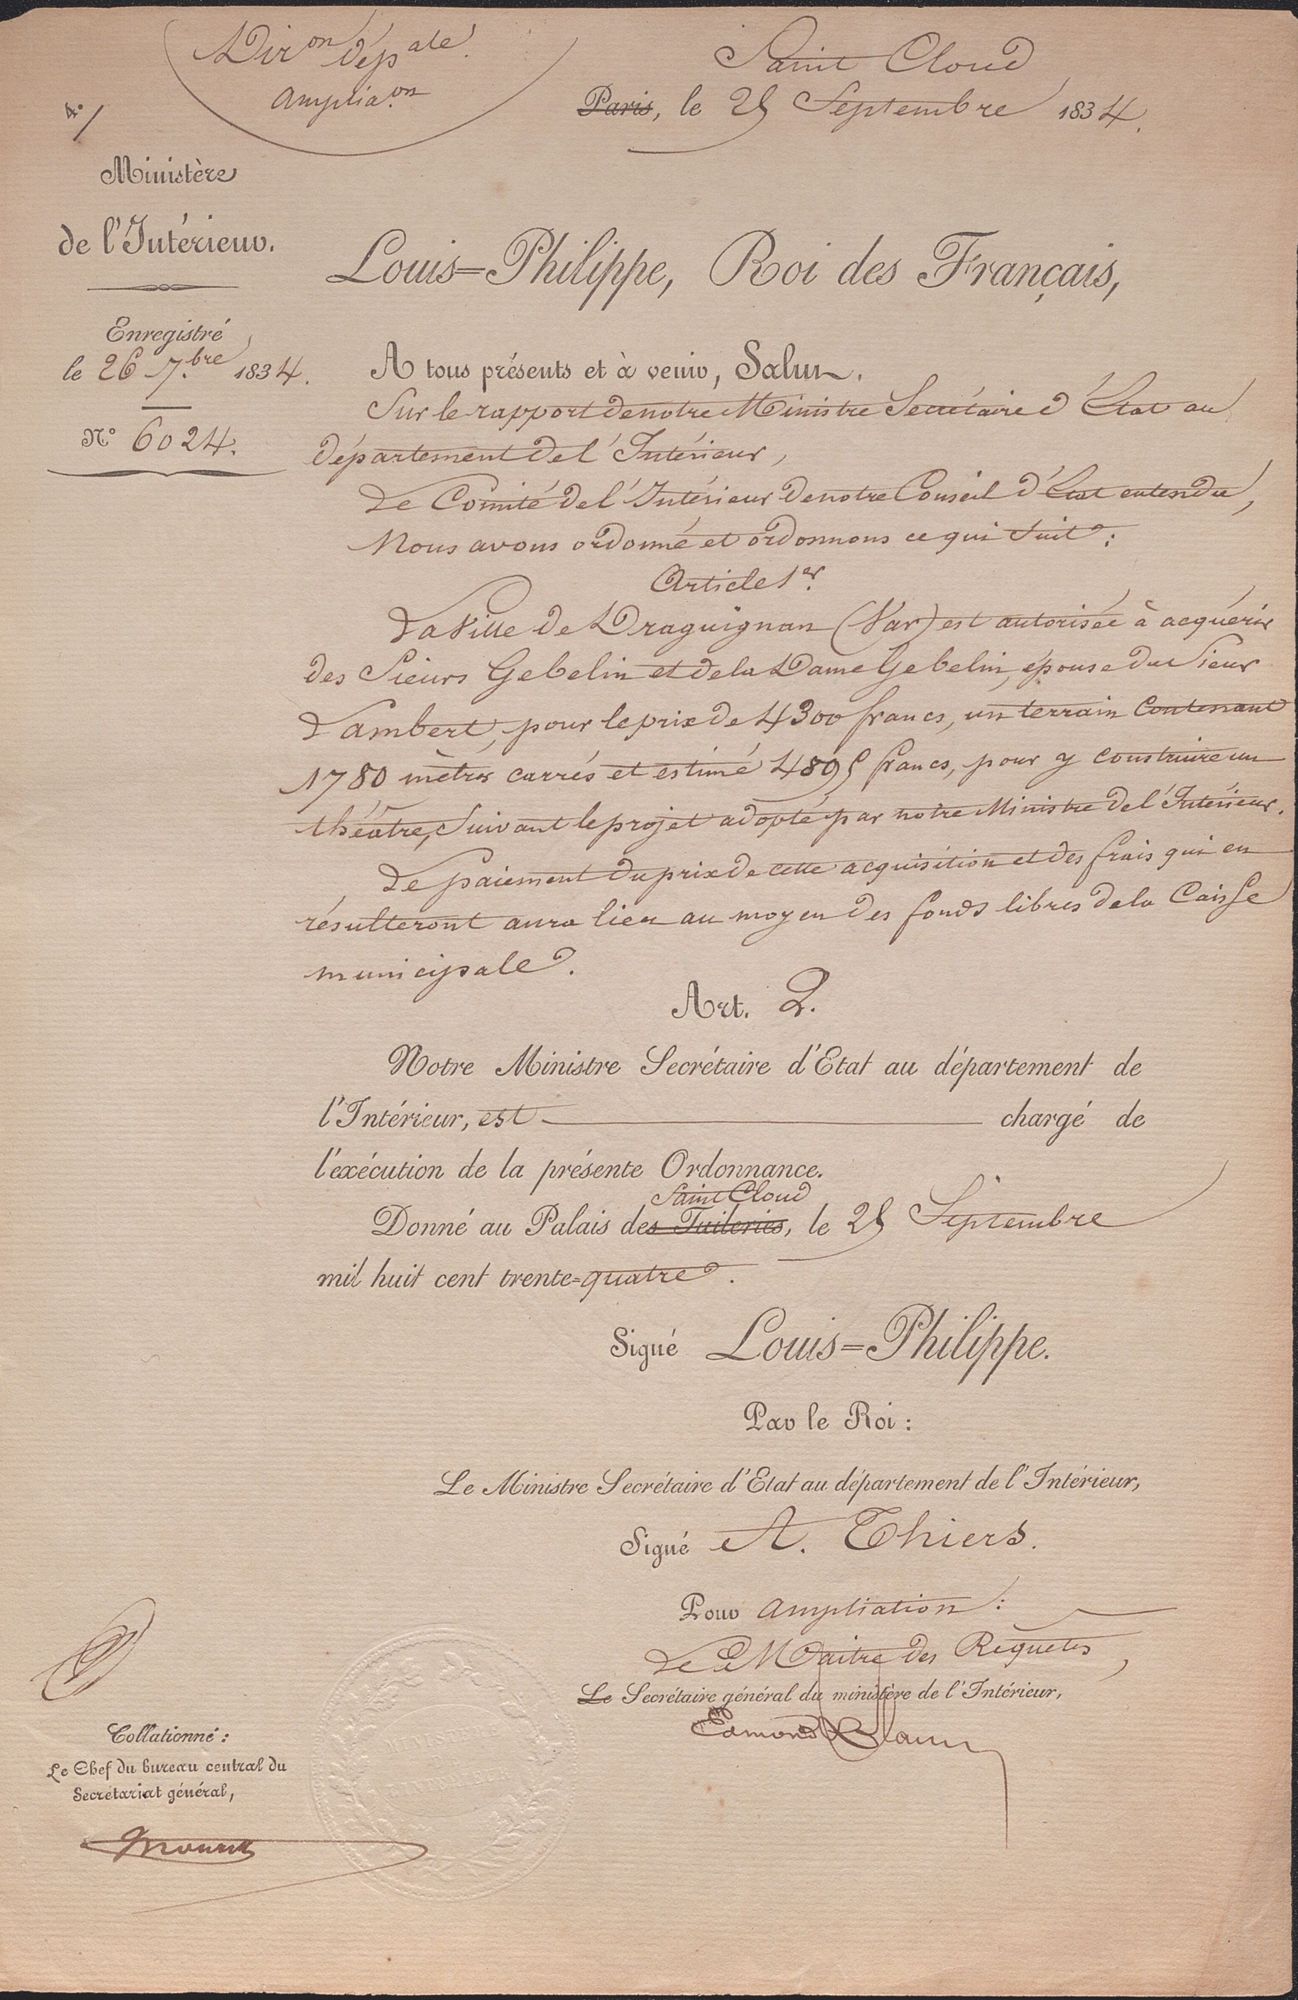 Dir.on dép.ale
Amplia.on
4°/
Saint Cloud
Paris, le 25 Septembre 1834.
Ministère
de l'Intérieur.
Enregistré
le 26 7.bre 1834.
N° 6024.
Louis=Philippe, Roi des Français,
A tous présents et à venir, Salut.
Sur le rapport de notre Ministre Secrétaire d'État au
département de l'Intérieur,
Le Comité de l'Intérieur de notre Conseil d'État entendu,
Nous avons ordonné et ordonnons ce qui suit :
Article 1er.
La Ville de Draguignan (Var) est autorisée à acquérir
des Sieurs Gebelin et de la Dame Gebelin, épouse du Sieur
Lambert, pour le prix de 4300 francs, un terrain contenant
1780 mètres carrés et estimé 4895 francs, pour y construire un
théâtre, suivant le projet adopté par notre Ministre de l'Intérieur.
Le paiement du prix de cette acquisition et des frais qui en
résulteront aura lieu au moyen des fonds libres de la Caisse
municipale.
Art. 2.
Notre Ministre Secrétaire d'Etat au département de
l'Intérieur, est chargé de
l'exécution de la présente Ordonnance.
Saint Cloud
Donné au Palais des Tuileries, le 25 Septembre
mil huit cent trente=quatre.
Signé Louis=Philippe.
Par le Roi :
Le Ministre Secrétaire d'Etat au département de l'Intérieur,
Signé A. Thiers.
Pour Ampliation :
Le Maitre des Requetes,
Le Secrétaire général du ministère de l'Intérieur,
Edmond Blanc
Collationné :
Le Chef du bureau central du
Secrétariat général,